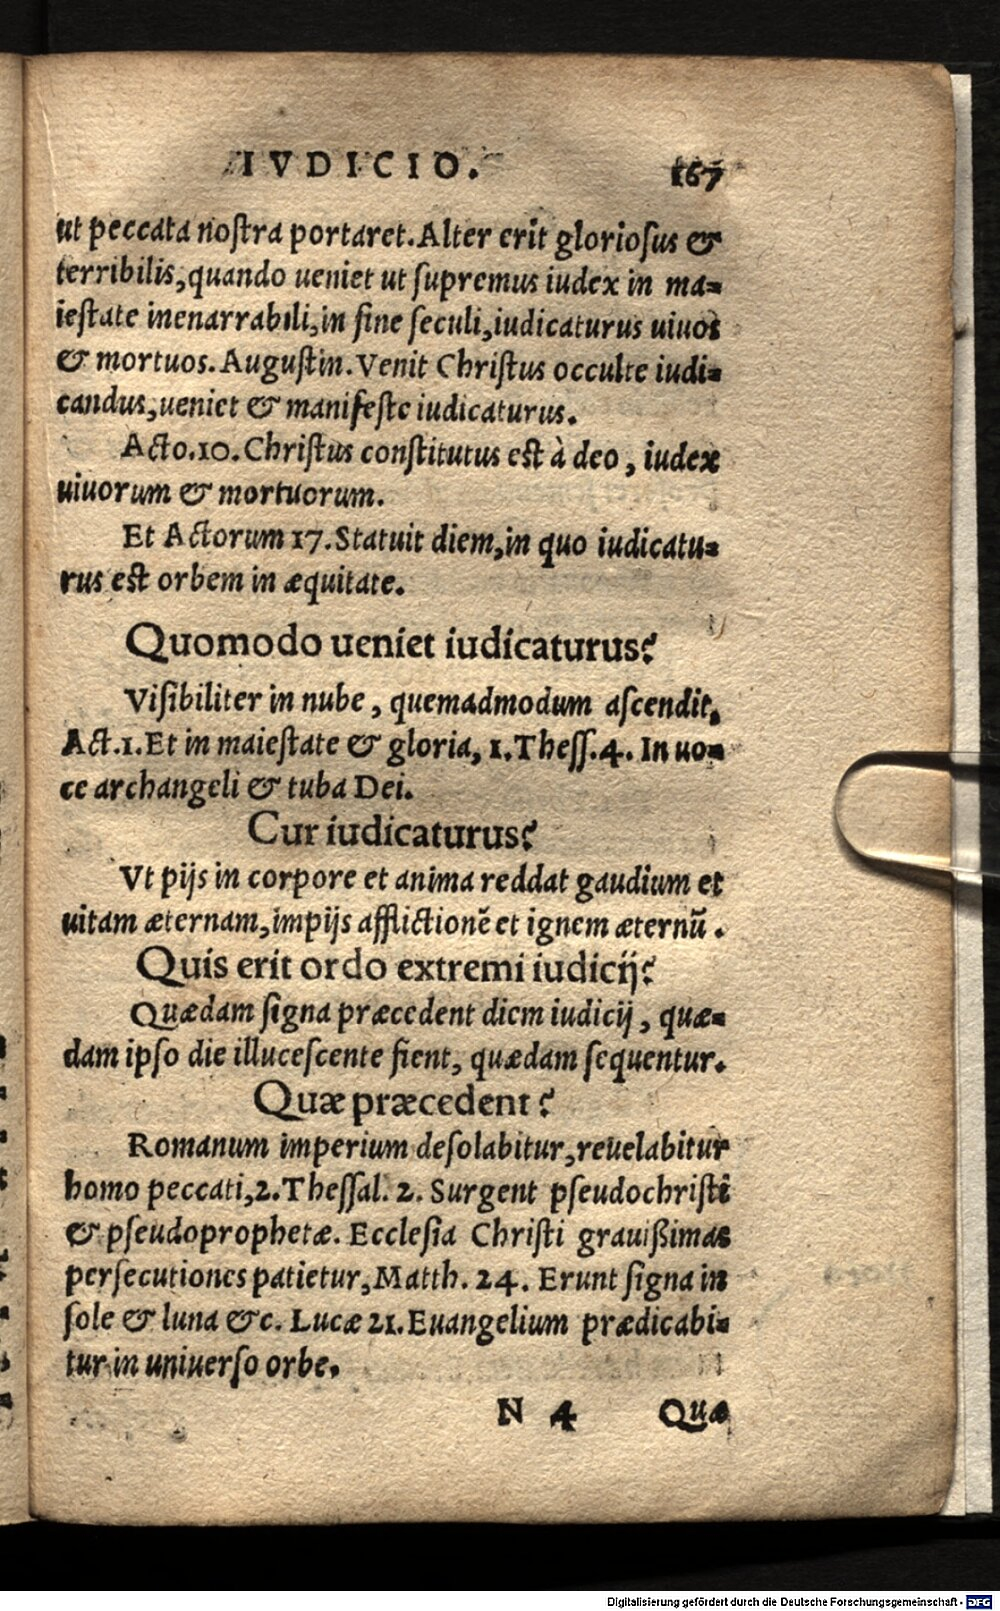 IVDICIO. 167
ut peccata noſtra portaret. Alter erit glorioſus &
terribilis, quando ueniet ut ſupremus iudex in ma-
ieſtate inenarrabili, in fine ſeculi, iudicaturus uiuos
& mortuos. Auguſtin. Venit Chriſtus occulte iudi-
candus, ueniet & manifeſte iudicaturus.
Acto. 10. Chriſtus conſtitutus eſt à deo, iudex
uiuorum & mortuorum.
Et Actorum 17. Statuit diem, in quo iudicatu-
rus eſt orbem in æquitate.
Quomodo ueniet iudicaturus?
Viſibiliter in nube, quemadmodum aſcendit,
Act. 1. Et in maieſtate & gloria, 1. Theſſ. 4. In uo-
ce archangeli & tuba Dei.
Cur iudicaturus?
Vt pijs in corpore et anima reddat gaudium et
uitam æternam, impijs afflictionē et ignem æternū.
Quis erit ordo extremi iudicij?
Quædam ſigna præcedent diem iudicij, quæ-
dam ipſo die illuceſcente fient, quædam ſequentur.
Quæ præcedent?
Romanum imperium deſolabitur, reuelabitur
homo peccati, 2. Theſſal. 2. Surgent pſeudochriſti
& pſeudoprophetæ. Eccleſia Chriſti grauißimas
perſecutiones patietur, Matth. 24. Erunt ſigna in
ſole & luna &c. Lucæ 21. Euangelium prædicabi-
tur in uniuerſo orbe.
N 4 Quæ
Digitalisierung gefördert durch die Deutsche Forschungsgemeinschaft - DFG